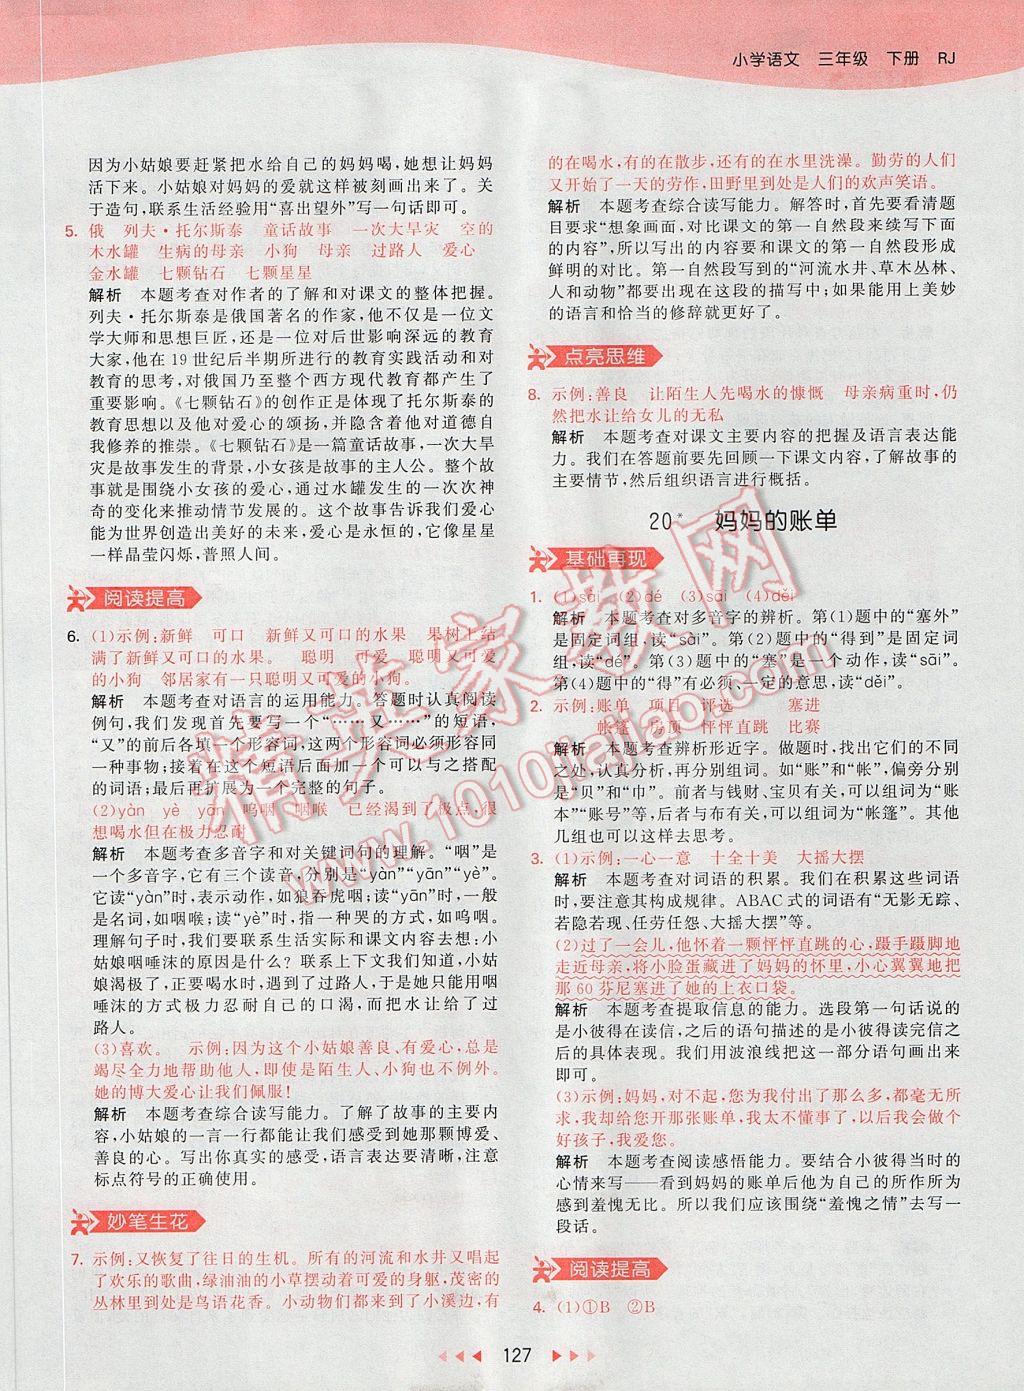 小学语文 三年级 下册 RJ
因为小姑娘要赶紧把水给自己的妈妈喝,她想让妈妈
活下来。小姑娘对妈妈的爱就这样被刻画出来了。关
于造句,联系生活经验用“喜出望外”写一句话即可。
5. 俄 列夫·托尔斯泰 童话故事 一次大旱灾 空的
木水罐 生病的母亲 小狗 母亲 过路人 爱心
金水罐 七颗钻石 七颗星星
解析 本题考查对作者的了解和对课文的整体把握。
列夫·托尔斯泰是俄国著名的作家,他不仅是一位文
学大师和思想巨匠,还是对后世影响深远的教育
大家,他在19世纪后半期所进行的教育实践活动和对
教育的思考,对俄国乃至整个西方现代教育都产生了
影响。《七颗钻石》的创作正是体现了托尔斯泰的教
育思想以及他对爱心的颂扬,并隐含着他对道德自
我修养的推崇。《七颗钻石》是一篇童话故事,一次大旱
灾是故事发生的背景,小女孩是故事的主人公。整个故
事就是围绕小女孩的爱心,通过水罐发生的一次次神
奇的变化来推动情节发展的。这个故事告诉我们爱心
能为世界创造出美好的未来,爱心是永恒的,它像星星
一样晶莹闪烁,普照人间。
阅读提高
6. (1)示例:新鲜 可口 新鲜又可口的水果 果树上结
满了新鲜又可口的水果。 聪明 可爱 聪明又可爱
的小狗 邻居家有一只聪明又可爱的小狗。
解析 本题考查对语言的运用能力。答题时认真阅读
例句,我们发现首先要写一个“……又……”的短语,
“又”的前后各填一个形容词,这两个形容词必须形容同
一种事物;接着在这个短语后面加一个可以与之搭配
的词语;最后再扩展成一个完整的句子。
(2)yàn yè yān 呜咽 咽喉 已经渴到了极点,很
想喝水但在极力忍耐
解析 本题考查多音字和对关键词句的理解。“咽”是
一个多音字,它有三个读音,分别是“yàn”“yān”“yè”。
它读“yàn”时,表示动作,如狼吞虎咽;读“yān”时,一般
是名词,如咽喉;读“yè”时,指一种哭的方式,如呜咽。
理解句子时,我们要联系生活实际和课文内容去想:小
姑娘咽唾沫的原因是什么?联系上下文我们知道,小姑
娘渴极了,正要喝水的时候,遇到了过路人,她只能用咽
唾沫的方式极力忍耐自己的口渴,而把水让给了过
路人。
(3)喜欢。 示例:因为这个小姑娘善良、有爱心,总是
竭尽全力地帮助他人,即使是陌生人、小狗也不例外。
她的博大爱心让我们佩服!
解析 本题考查综合读写能力。了解了故事的主要内
容,小姑娘的一言一行都能让我们感受到她那颗博爱、
善良的心。写出你真实的感受,语言表达要清晰,注意
标点符号的正确使用。
妙笔生花
7. 示例:又恢复了往日的生机。所有的河流和水井又唱起
了欢乐的歌曲,绿油油的小草摆动着可爱的身躯,茂密的
丛林里到处是鸟语花香。小动物们又来到了小溪边,有
的在喝水,有的在散步,还有的在水里洗澡。勤劳的人们
又开始了一天的劳作,田野里到处是人们的欢声笑语。
解析 本题考查综合读写能力。解答时,首先要看清题
目要求“想象画面,对比课文的第一自然段来续写下面
的内容”,所以写出的内容要和课文的第一自然段形成
鲜明的对比。第一自然段写到的“河流水井、草木丛林、
人和动物”都要出现在这段的描写中;如果能用上美妙
的语言和恰当的修辞就更好了。
点亮思维
8. 示例:善良 让陌生人先喝水的慷慨 母亲病重时,仍
然把水让给女儿的无私
解析 本题考查对课文主要内容的把握及语言表达能
力。我们在答题前要先回顾一下课文内容,了解故事的
主要情节,然后组织语言进行概括。
20* 妈妈的账单
基础再现
1. (1)sài (2)dé (3)sāi (4)děi
解析 本题考查对多音字的辨析。第(1)题中的“塞外”
是固定词组,读“sài”。第(2)题中的“得到”是固定词
组,读“dé”。第(3)题中的“塞”是一个动作,读“sāi”。
第(4)题中的“得”有必须、一定的意思,读“děi”。
2. 示例:账单 项目 评选 塞进
帐篷 头顶 怦怦直跳 比赛
解析 本题考查辨析形近字。做题时,找出它们的不同
之处,认真分析,再分别组词。如“账”和“帐”,偏旁分别
是“贝”和“巾”。前者与钱财、宝贝有关,可以组词为“账
本”“账号”等,后者与布有关,可以组词为“帐篷”。其他
几组也可以这样去思考。
3. (1)示例:一心一意 十全十美 大摇大摆
解析 本题考查对词语的积累。我们在积累这些词语
时,要注意其构成规律。ABAC式的词语有“无影无踪、
若隐若现、任劳任怨、大摇大摆”等。
(2)过了一会儿,他怀着一颗怦怦直跳的心,蹑手蹑脚地
走近母亲,将小脸蛋藏进了妈妈的怀里,小心翼翼地把
那60芬尼塞进了她的上衣口袋。
解析 本题考查提取信息的能力。选段第一句话说的
是小彼得在读信,之后的语句描述的是小彼得读完信之
后的具体表现。我们用波浪线把这一部分语句画出来
即可。
(3)示例:妈妈,对不起,您为我付出了那么多,都毫无所
求,我却给您开那张账单,我太不懂事了,以后我会做个
好孩子,我爱您。
解析 本题考查阅读感悟能力。要结合小彼得当时的
心情来写——看到妈妈的账单后他为自己的所作所为
感到羞愧无比。所以我们应该围绕“羞愧之情”去写一
段话。
阅读提高
4. (1)①B ②B
127
精英家教网
www.1010jiajiao.com